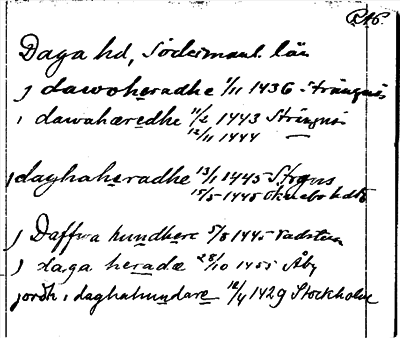 R 16.
Daga hd, Södermanl. län
J dawoheradhe 1/11 1436 Strängnäs
i dawahæredhe 11/2 1443 Strängnäs
12/11 1444 —
J daghaheradhe 13/1 1445 Stregns
15/5 1445 Oknebo hdtg
J Daffwa hundhere 5/8 1445 Vadstena
J daga heradæ 28/10 1455 Åby
jordh i daghahundare 12/4 1429 Stockholm